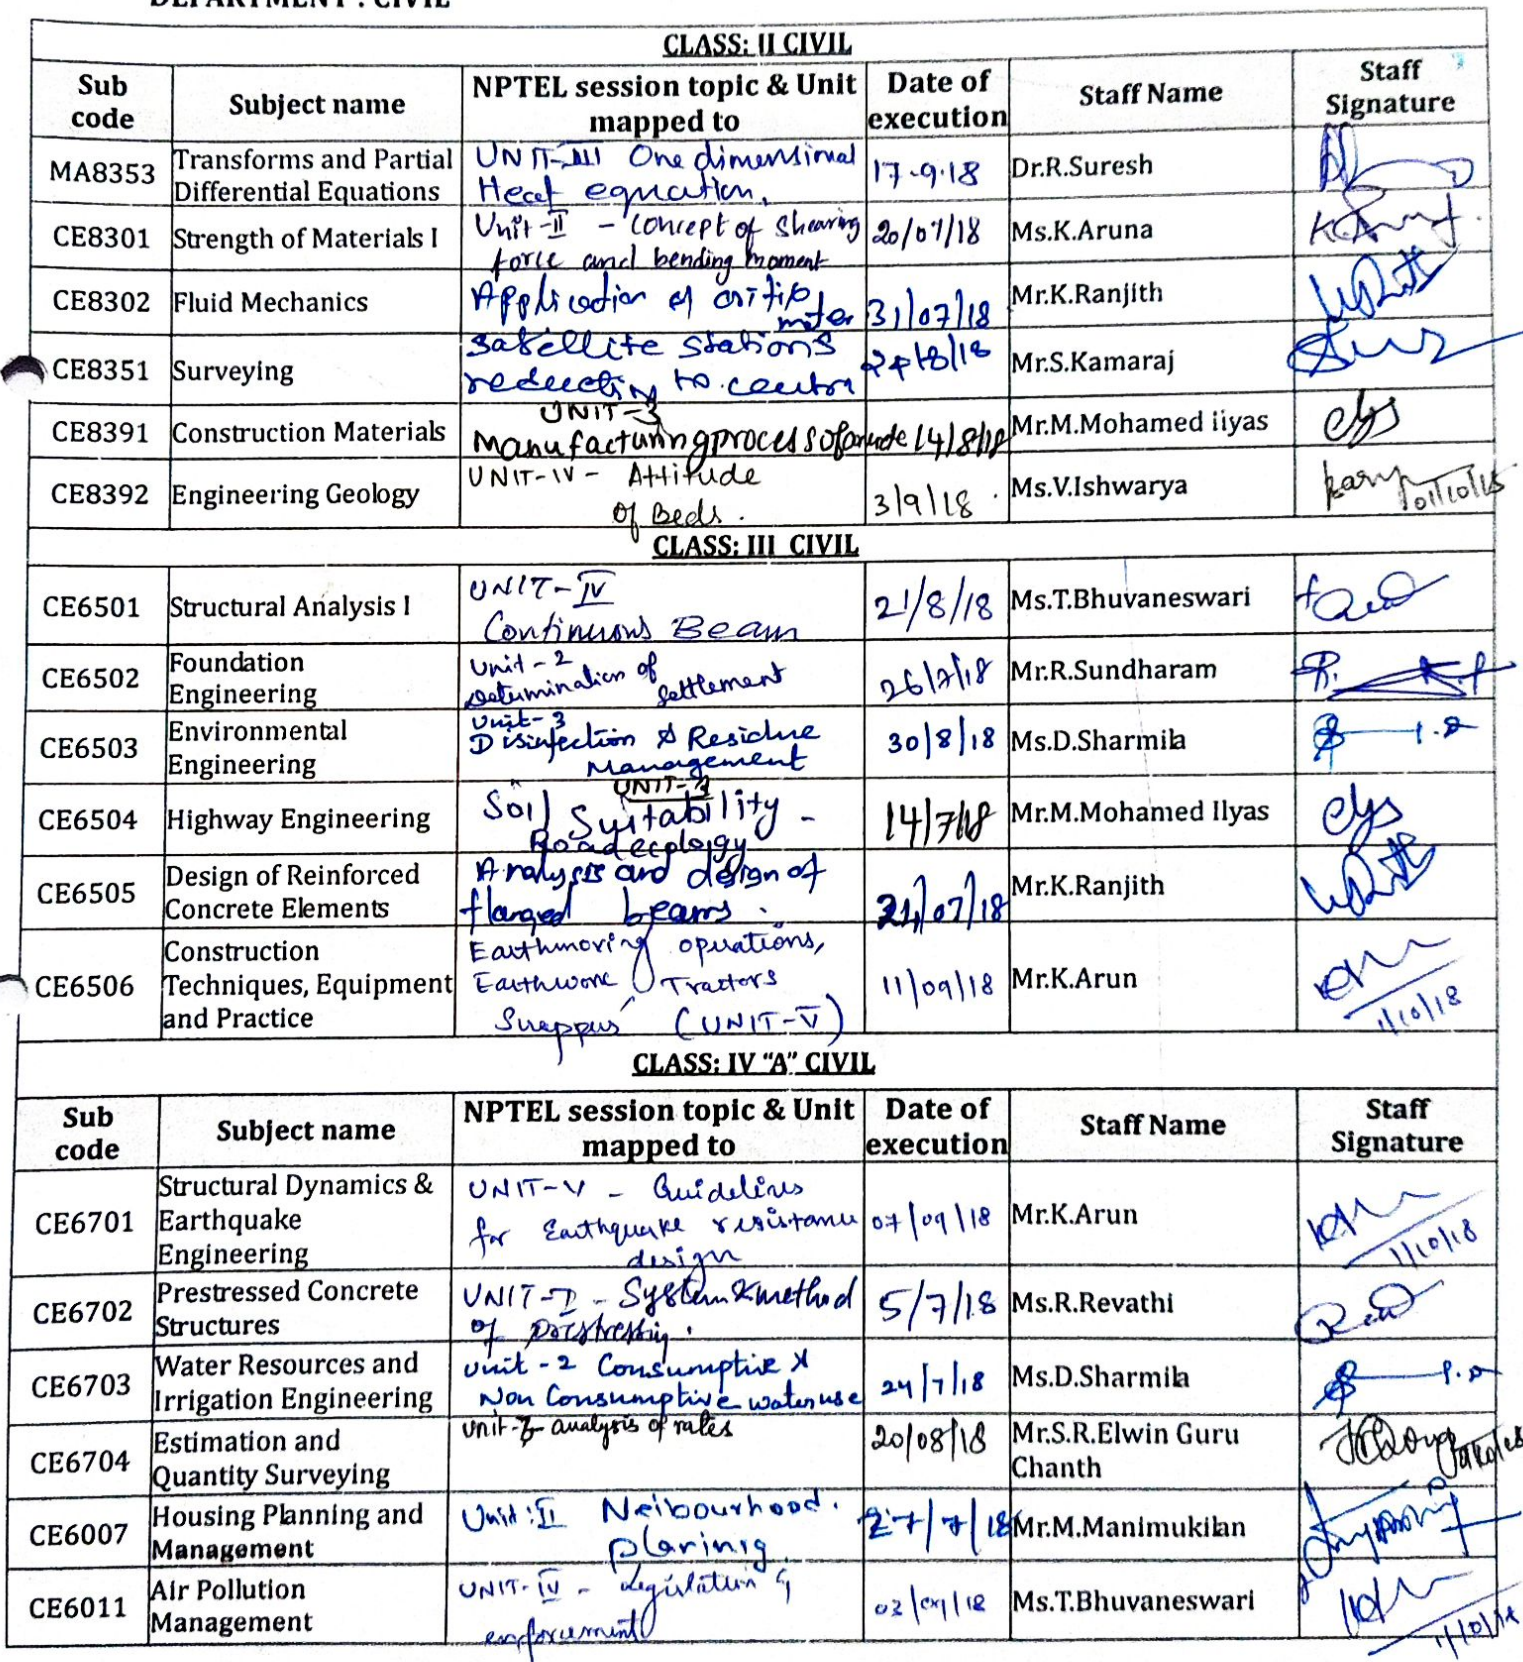 DEPARTMENT : CIVIL
CLASS: II CIVIL
Sub code | Subject name | NPTEL session topic & Unit mapped to | Date of execution | Staff Name | Staff Signature
MA8353 | Transforms and Partial Differential Equations | UNIT-III One dimensional Heat equation. | 17.9.18 | Dr.R.Suresh
CE8301 | Strength of Materials I | Unit-II - Concept of shearing force and bending moment | 20/07/18 | Ms.K.Aruna
CE8302 | Fluid Mechanics | Application of meter | 31/07/18 | Mr.K.Ranjith
CE8351 | Surveying | Satellite stations to | Mr.S.Kamaraj
CE8391 | Construction Materials | UNIT-3 Manufacturing process of | 14/8/18 | Mr.M.Mohamed iiyas
CE8392 | Engineering Geology | UNIT-IV - Attitude of Beds. | 3/9/18 | Ms.V.Ishwarya | 01/10/18
CLASS: III CIVIL
CE6501 | Structural Analysis I | UNIT-IV Continuous Beam | 21/8/18 | Ms.T.Bhuvaneswari
CE6502 | Foundation Engineering | Unit-2 Determination of Settlement | 26/7/18 | Mr.R.Sundharam
CE6503 | Environmental Engineering | Unit-3 Disinfection & Residue Management | 30/8/18 | Ms.D.Sharmila
CE6504 | Highway Engineering | Soil Suitability - Road ecology | 14/7/18 | Mr.M.Mohamed Ilyas
CE6505 | Design of Reinforced Concrete Elements | Analysis and design of flanged beams. | /07/18 | Mr.K.Ranjith
CE6506 | Construction Techniques, Equipment and Practice | Earthmoving operations, Tractors (UNIT-V) | 11/09/18 | Mr.K.Arun | 1/10/18
CLASS: IV "A" CIVIL
Sub code | Subject name | NPTEL session topic & Unit mapped to | Date of execution | Staff Name | Staff Signature
CE6701 | Structural Dynamics & Earthquake Engineering | UNIT-V - Guidelines for Earthquake resistance design | 07/09/18 | Mr.K.Arun | 1/10/18
CE6702 | Prestressed Concrete Structures | UNIT-I - System & method of prestressing. | 5/7/18 | Ms.R.Revathi
CE6703 | Water Resources and Irrigation Engineering | Unit-2 Consumptive & Non Consumptive water use | 24/7/18 | Ms.D.Sharmila
CE6704 | Estimation and Quantity Surveying | analysis of rates | 20/08/18 | Mr.S.R.Elwin Guru Chanth
CE6007 | Housing Planning and Management | Unit:II Neibourhood. | 27/7/18 | Mr.M.Manimukilan
CE6011 | Air Pollution Management | UNIT-IV - Legislation & enforcement | 03/09/18 | Ms.T.Bhuvaneswari | 1/10/18